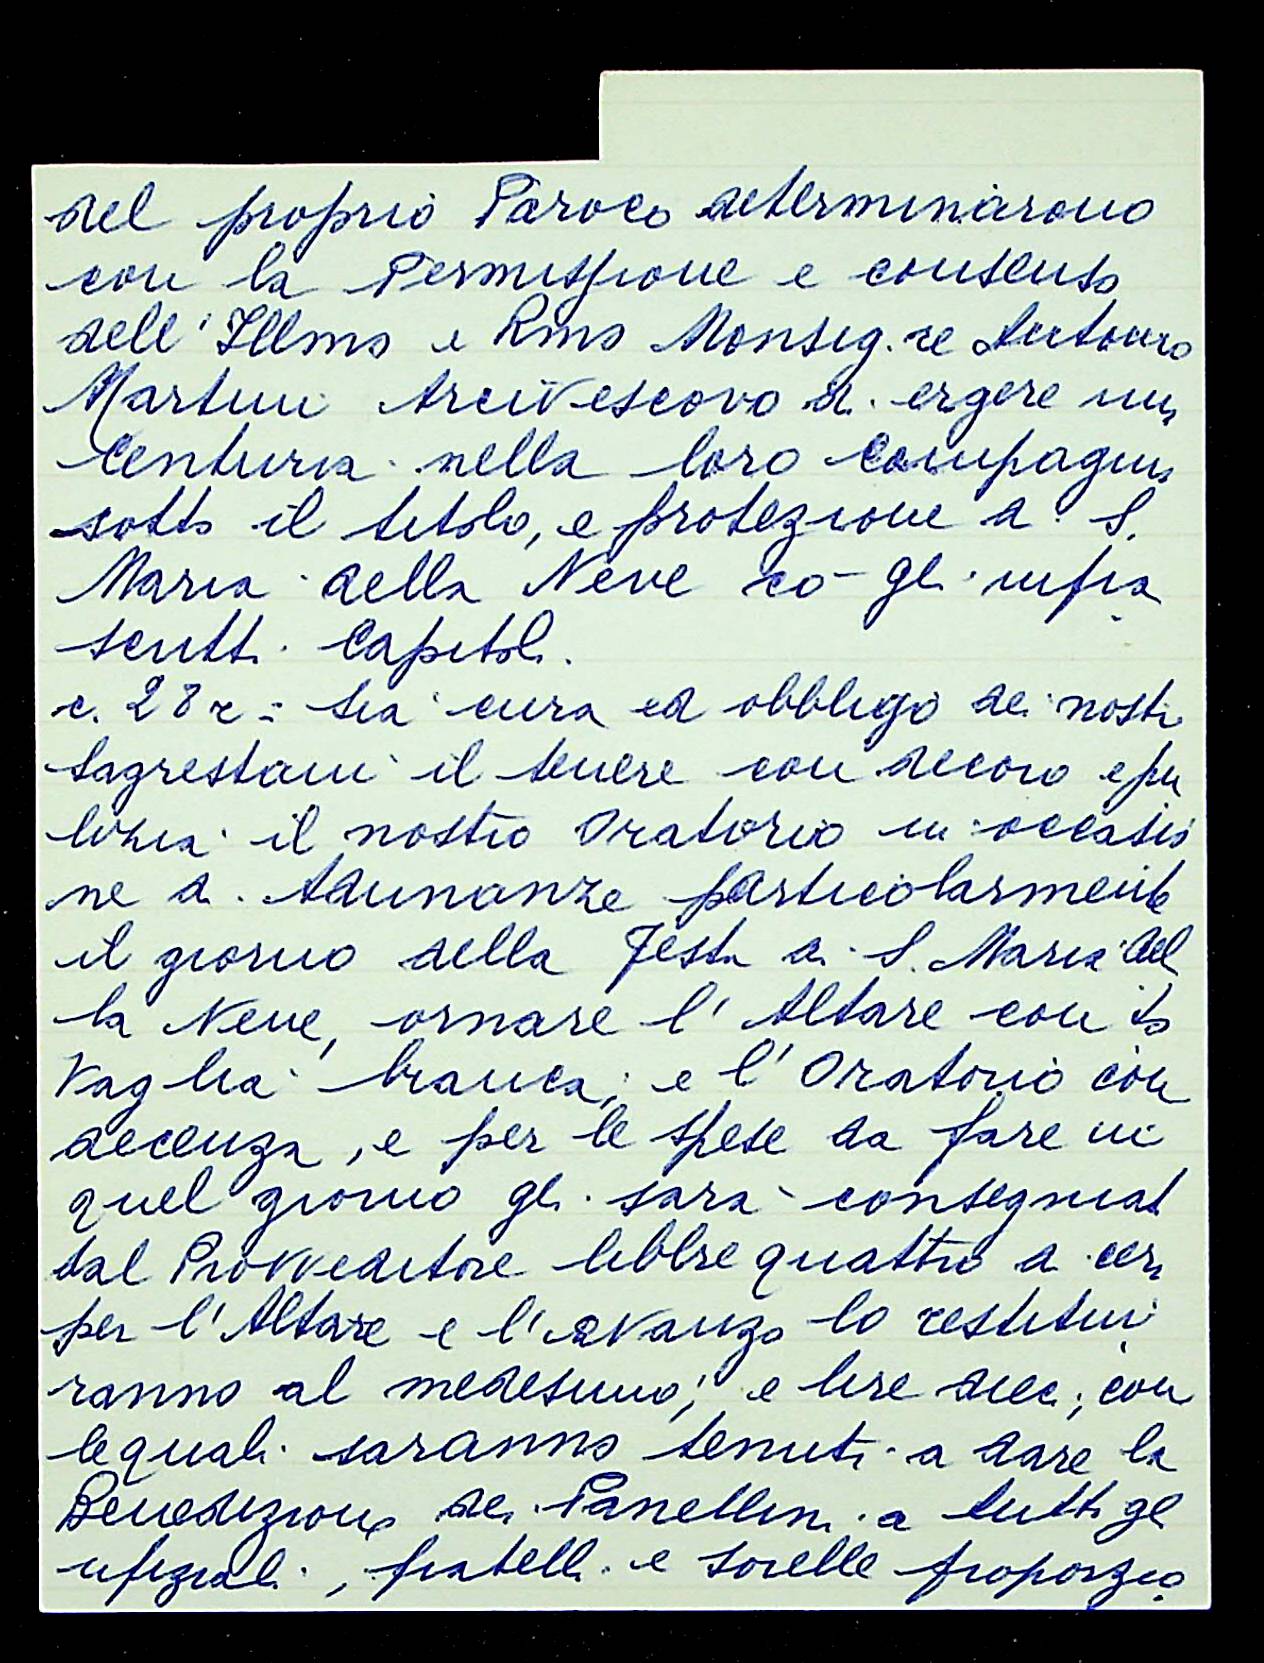 del proprio Paroco determinarono
con la Permissione e consenso
dell'Illmo e Rmo Monsig.re Antonio
Martini Arcivescovo di ergere una
Centuria nella loro Compagnia
sotto il titolo, e protezione di S.
Maria della Neve co- gli infra
scritti Capitoli.
c. 28 r = Sia cura ed obbligo dei nostri
Sagrestani il tenere con decoro e pu
lizia il nostro Oratorio in occasio
ne di Adunanze particolarmente
il giorno della Festa di S. Maria del
la Neve, ornare l'Altare con to
vaglia bianca, e l'Oratorio con
decenza, e per le spese da fare in
quel giorno gli sarà consegnato
dal Provveditore libbre quattro di cera
per l'Altare e l'avanzo lo restitui
ranno al medesimo; e lire dieci, con
le quali saranno tenuti a dare la
Benedizione dei Panellini a tutti gli
ufiziali, fratelli e sorelle proporzio